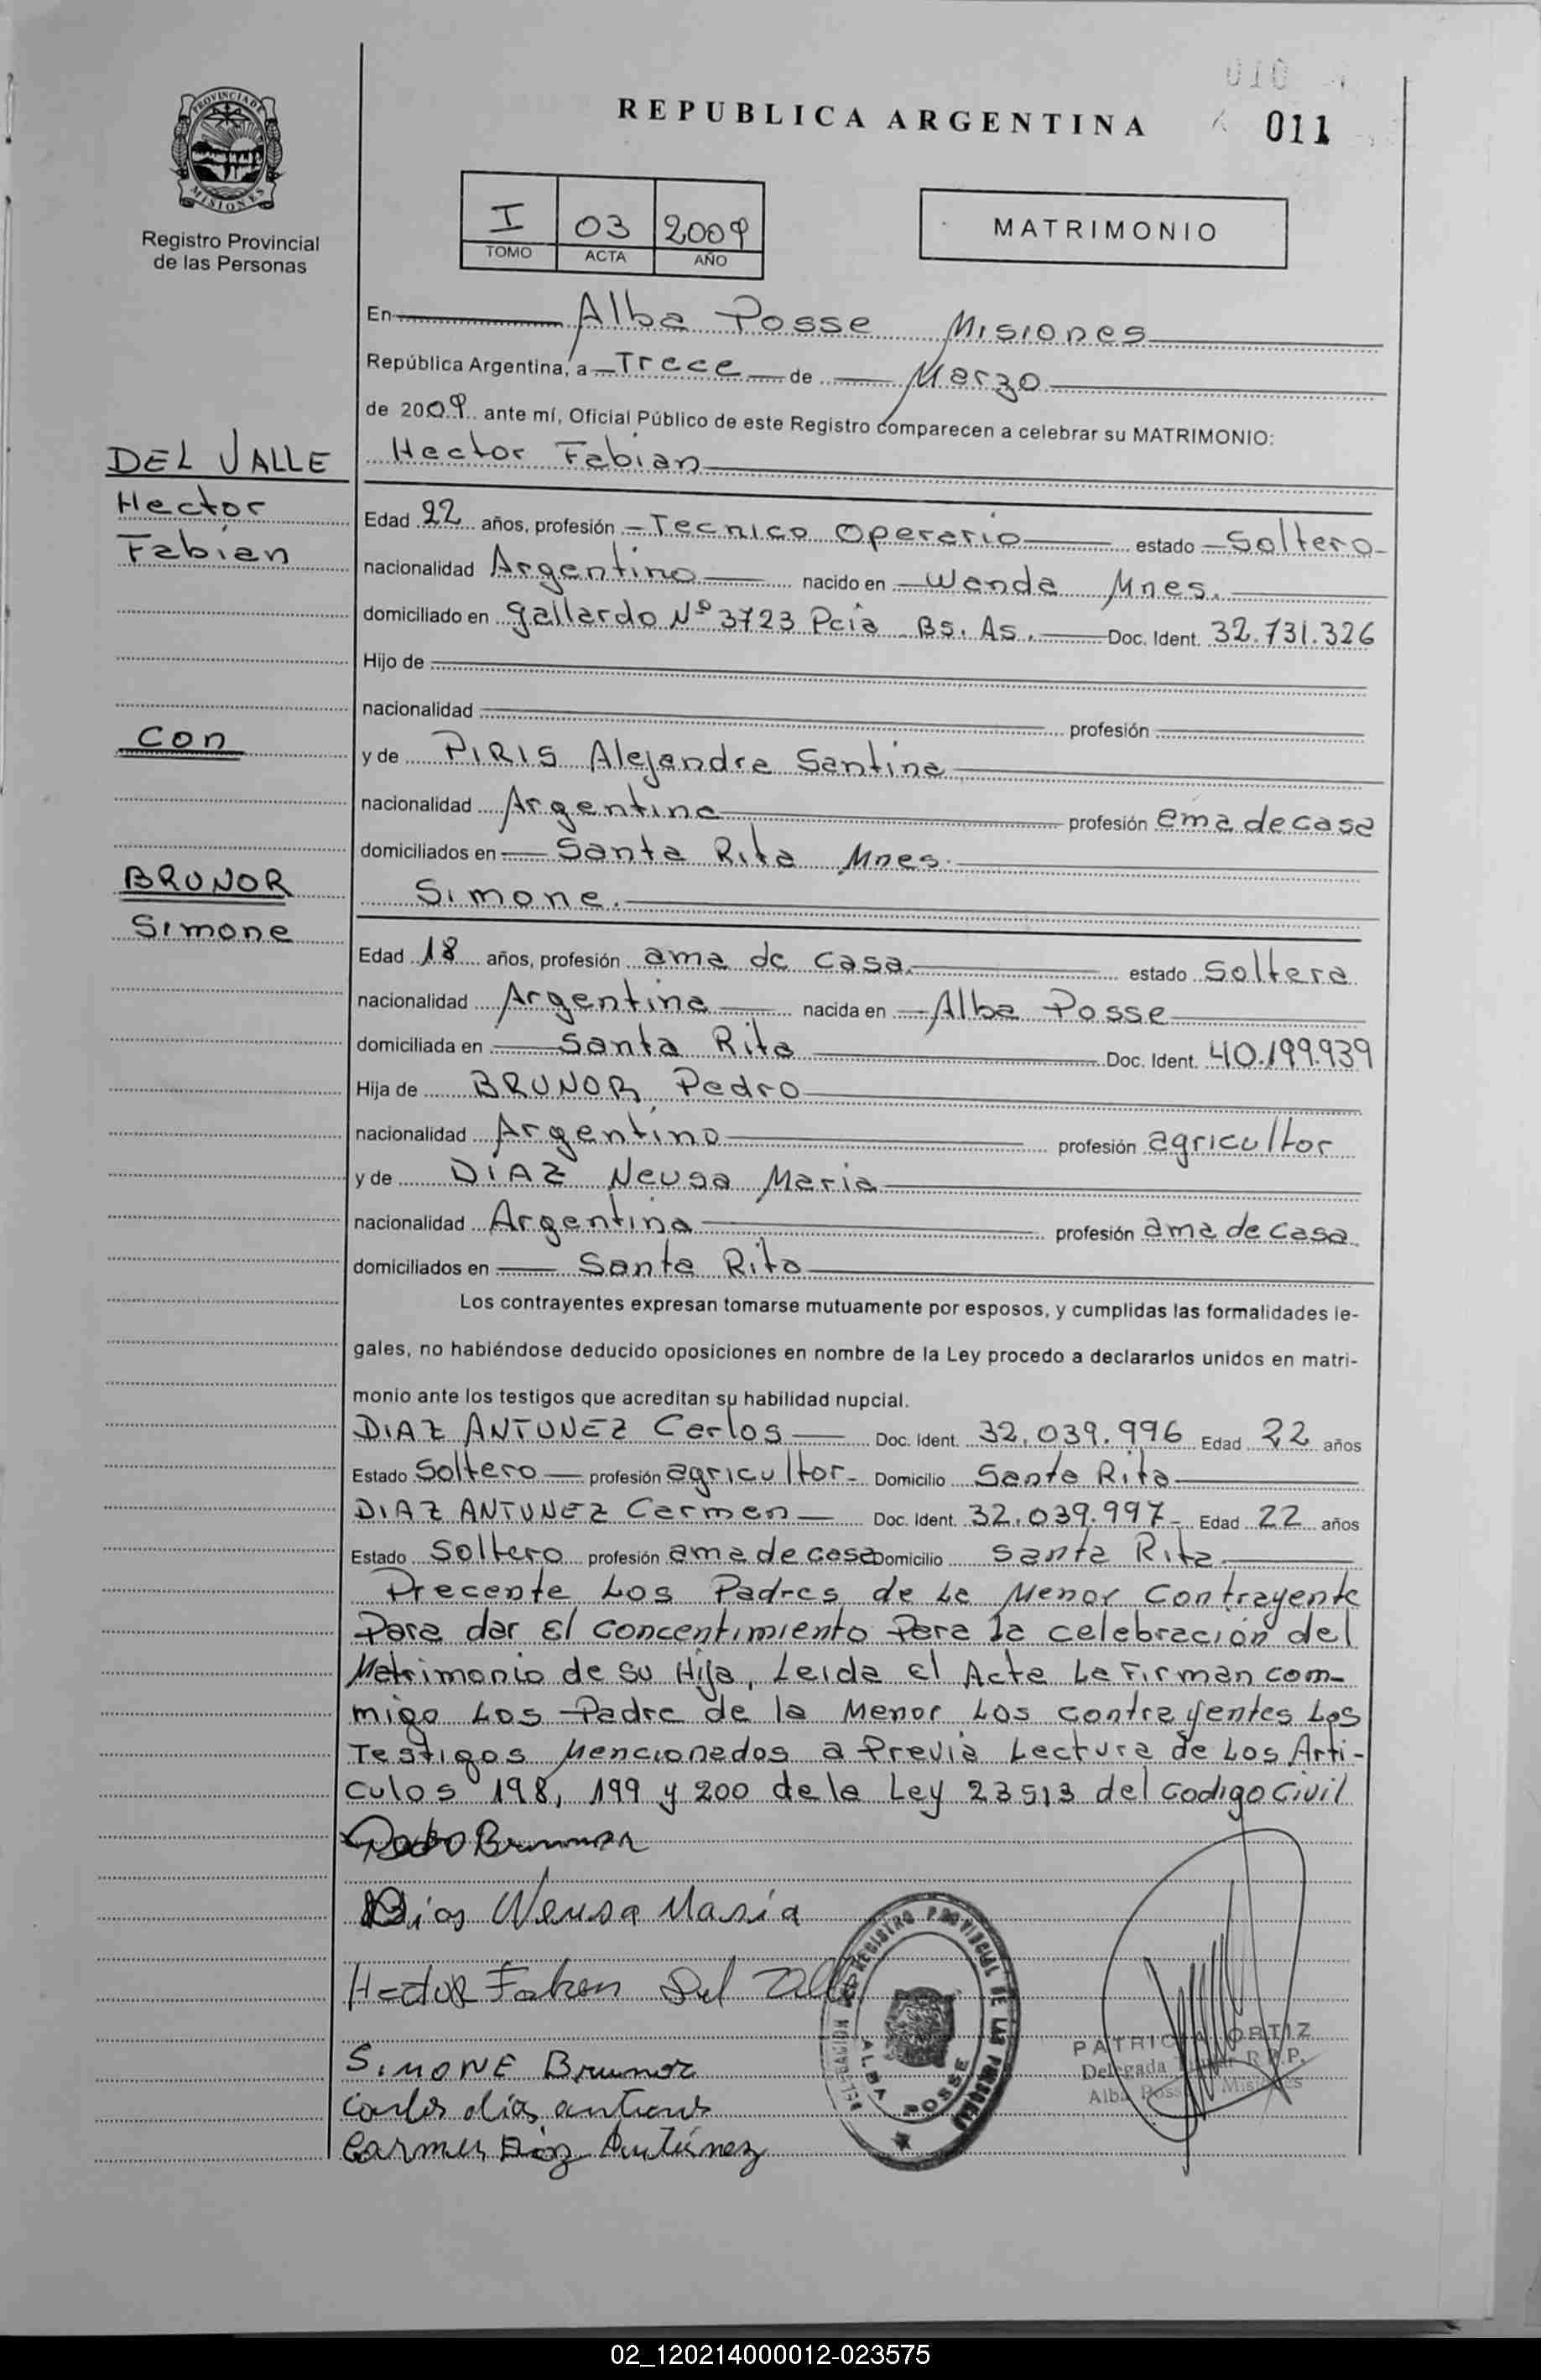 010
REPUBLICA ARGENTINA
011
PROVINCIA DE
MISIONES
Registro Provincial
de las Personas
I 03 2009
TOMO ACTA AÑO
MATRIMONIO
En Alba Posse Misiones
República Argentina, a Trece de Marzo
de 2009 ante mí, Oficial Público de este Registro comparecen a celebrar su MATRIMONIO:
DEL VALLE
Hector Fabian
Hector
Fabian
Edad 22 años, profesión Tecnico Operario estado Soltero
nacionalidad Argentino nacido en Wanda Mnes.
domiciliado en gallardo Nº 3723 Pcia Bs. As. Doc. Ident. 32.731.326
Hijo de
nacionalidad profesión
Con
y de PIRIS Alejandra Santina
nacionalidad Argentina profesión ama de casa
domiciliados en Santa Rita Mnes.
BRUNOR
Simone.
Simone
Edad 18 años, profesión ama de casa. estado Soltera
nacionalidad Argentina nacida en Alba Posse
domiciliada en Santa Rita Doc. Ident. 40.199.939
Hija de BRUNOR Pedro
nacionalidad Argentino profesión agricultor
y de DIAZ Neusa Maria
nacionalidad Argentina profesión ama de casa
domiciliados en Santa Rita
Los contrayentes expresan tomarse mutuamente por esposos, y cumplidas las formalidades le-
gales, no habiéndose deducido oposiciones en nombre de la Ley procedo a declararlos unidos en matri-
monio ante los testigos que acreditan su habilidad nupcial.
DIAZ ANTUNEZ Carlos Doc. Ident. 32.039.996 Edad 22 años
Estado Soltero profesión agricultor Domicilio Santa Rita
DIAZ ANTUNEZ Carmen Doc. Ident. 32.039.997 Edad 22 años
Estado Soltero profesión ama de casa Domicilio Santa Rita
Precente Los Padres de La Menor Contrayente
Para dar El Concentimiento Para la celebración del
Matrimonio de su Hija, Leida el Acta La Firman com-
migo Los Padre de la Menor Los contrayentes Los
Testigos Mencionados a Previa Lectura de Los Arti-
culos 198, 199 y 200 de la Ley 23513 del Codigo Civil
Pedro Brunnor
Dias Neusa Maria
Hector Fabian Del Valle
REGISTRO PROVINCIAL DE LAS PERSONAS
ALBA POSSE
PATRICIA ORTIZ
Delegada Titular R.P.P.
Alba Posse Misiones
Simone Brunor
Carlos dias antunes
Carmen Díaz Antúnez
02_120214000012-023575